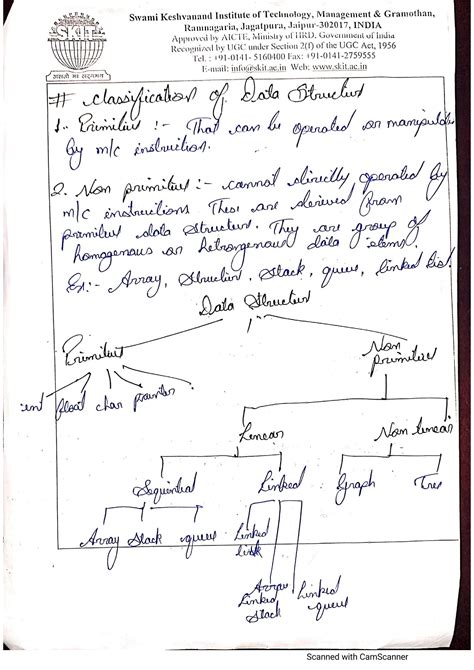 Swami Keshvanand Institute of Technology, Management & Gramothan,
Ramnagaria, Jagatpura, Jaipur-302017, INDIA
Approved by AICTE, Ministry of HRD, Government of India
Recognized by UGC under Section 2(f) of the UGC Act, 1956
Tel. : +91-0141- 5160400 Fax: +91-0141-2759555
E-mail: info@skit.ac.in Web: www.skit.ac.in
SKIT
# Classification of Data Structure
1.. Primitive :- That can be operated or manipulate
by m/c instruction.
2. Non primitive :- cannot directly operated by
m/c instructions These are derived from
primitive data structure. They are group of
homogenous or hetrogenous data items
Ex:- Array, Structure, stack, queue, linked list.
Data Structure
Primitive
Non
primitive
int float char pointer
Linear
Non linear
Sequential
Linked
Graph
Tree
Array Stack queue
Linked
Linked
Stack
Linked
queue
Scanned with CamScanner